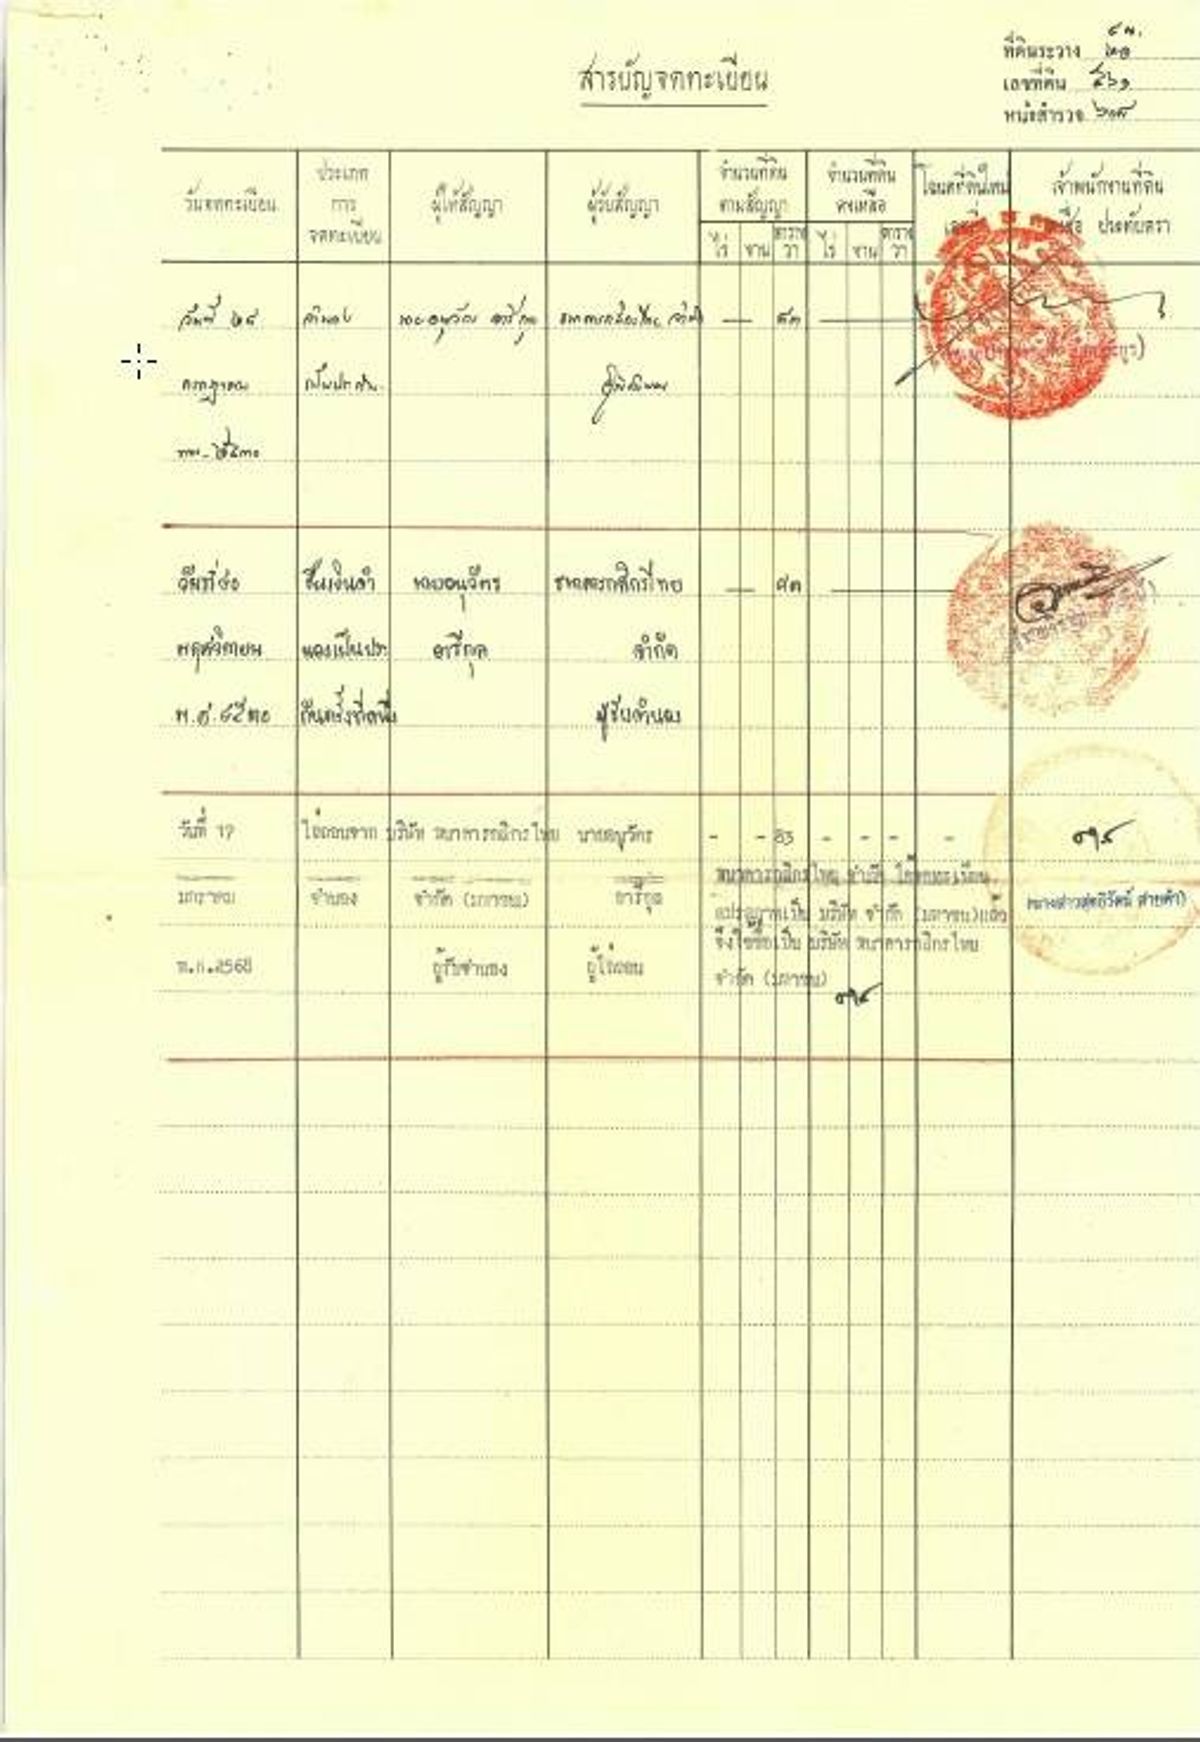 สารบัญจดทะเบียน
ที่ดินระวาง
เลขที่ดิน ๕๖๑
หน้าสำรวจ
วันจดทะเบียน
ประเภท
การ
จดทะเบียน
ผู้ให้สัญญา
ผู้รับสัญญา
จำนวนที่ดิน
ตามสัญญา
ไร่ งาน ตาราง
วา
จำนวนที่ดิน
คงเหลือ
ไร่ งาน ตาราง
วา
โฉนดที่ดินใหม่
เจ้าพนักงานที่ดิน
ลงชื่อ ประทับตรา
วันที่ ๒๔ จำนอง นายอนุวัตร อารีกุล ธนาคารกสิกรไทย จำกัด — ๘๓ —
กรกฎาคม เป็นประกัน ผู้รับจำนอง
พ.ศ. ๒๕๓๐
วันที่ ขึ้นเงินจำ นายอนุวัตร ธนาคารกสิกรไทย — ๘๓ —
พฤศจิกายน นองเป็นประ อารีกุล จำกัด
พ.ศ. ๒๕๓๐ กันครั้งที่หนึ่ง ผู้รับจำนอง
วันที่ 17 ไถ่ถอนจาก บริษัท ธนาคารกสิกรไทย นายอนุวัตร - - 83 - - - -
มกราคม จำนอง จำกัด (มหาชน) อารีกุล
พ.ศ.2568 ผู้รับจำนอง ผู้ไถ่ถอน
ธนาคารกสิกรไทย จำกัด ได้จดทะเบียน
แปรสภาพเป็น บริษัท จำกัด (มหาชน)แล้ว
จึงใช้ชื่อเป็น บริษัท ธนาคารกสิกรไทย
จำกัด (มหาชน)
(นางสาวสุทธิรัตน์ สายคำ)